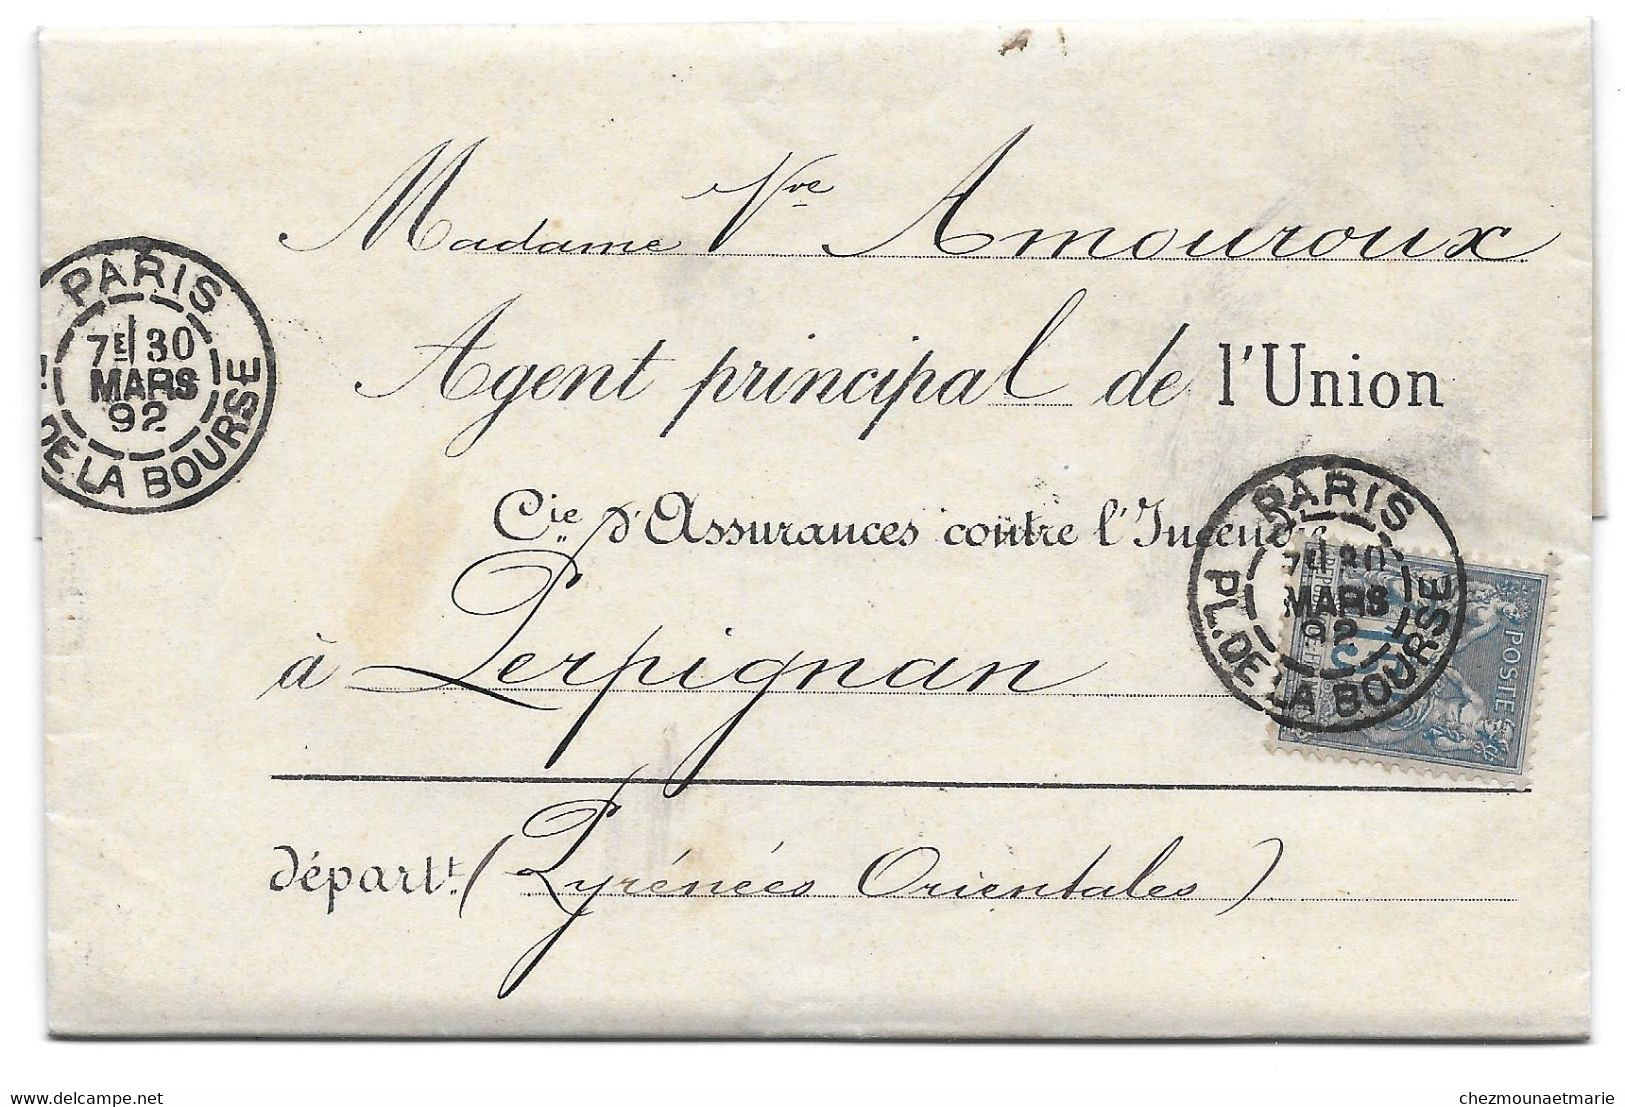 Madame Vve Amouroux
Agent principal de l'Union
Cie d'Assurances contre l'Incendie
à Perpignan
départt. (Pyrénées Orientales)
PARIS
7E 30
MARS
92
DE LA BOURSE
PARIS
7E 30
MARS
92
PL. DE LA BOURSE
POSTE
15
delcampe.net
chezmounaetmarie